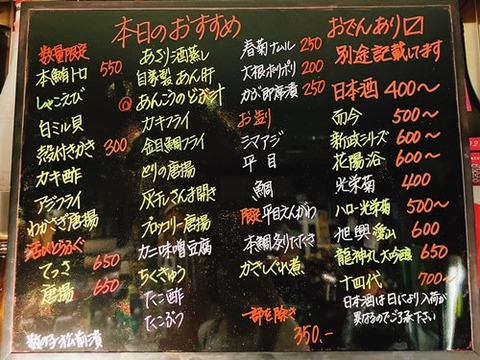 本日のおすすめ
数量限定
本鮪トロ 550
しゃこえび
白ミル貝
殻付きかき 300
カキ酢
アジフライ
わかさぎ唐揚
活〆とらふぐ
てっさ 650
唐揚 650
数の子松前漬
あさり酒蒸し
自家製あん肝
@ あんこうのどぶ汁
カキフライ
金目鯛フライ
とりの唐揚
灰干しさんま開き
ブロッコリー唐揚
カニ味噌豆腐
ちくきゅう
たこ酢
たこぶつ
春菊ナムル 250
大根ポリポリ 200
かぶ即席漬 250
お造り
シマアジ
平目
鯛
限定 平目えんがわ
本鯛炙りたたき
かさしぐれ煮
一部を除き
350.-
おでんあり〼
別途記載してます
日本酒 400〜
而今 500〜
新政シリーズ 600〜
花陽浴 600〜
光栄菊 400
ハロー光栄菊 500〜
旭興 愛山 600
龍神丸 大吟醸 650
十四代 700〜
日本酒は日により入荷が
異なるのでご了承下さい